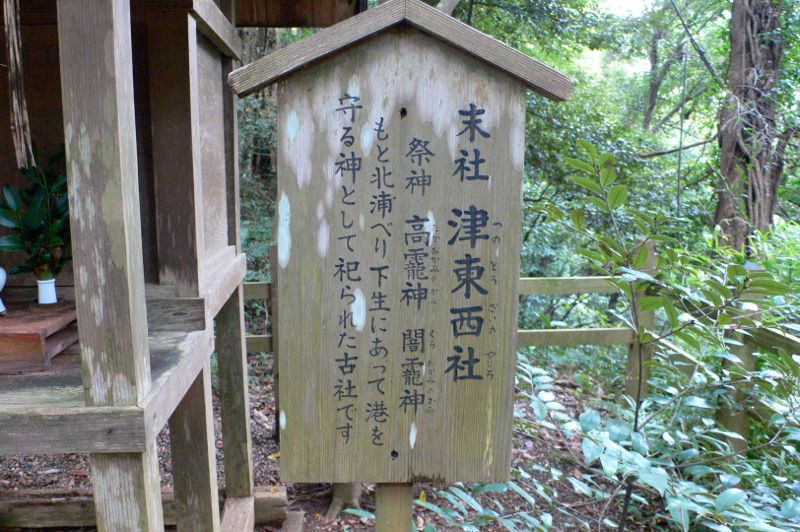 末社 津東西社
つのとうざいのやしろ
祭神 高靇神 闇靇神
たかおかみのかみ くらおかみのかみ
もと北浦べり下生にあって港を
守る神として祀られた古社です